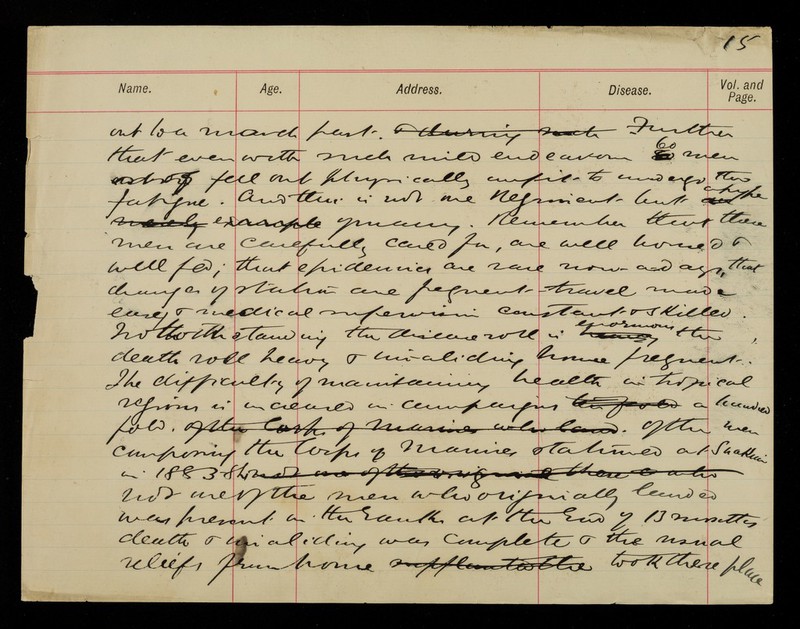 15
Name. Age. Address. Disease. Vol. and Page.
out to a march past. & during such Further
that even with such mild endeavour 60 men
fell out physically unfit to undergo the
fatigue. Another is not one Regiment but a type
merely example of many. Remember that these
men are carefully cared for, are well housed &
well fed; that epidemics are rare now-a-days, that
changes of station are frequent travel made
easy & medical supervision constant & skilled.
Notwithstanding the disease roll is enormous heavy the
death roll heavy & invaliding home frequent.
The difficulty of maintaining health in tropical
regions is increased in campaigns ten fold a hundred
fold. of the Corps of Marines who land. Of the men
composing the Corps of Marines stationed at Suakim
in 1883-84 not one of the original there who
not one of the men who originally landed
was present in the ranks at the end of 13 months
death & invaliding was complete & the usual
reliefs from home took there place